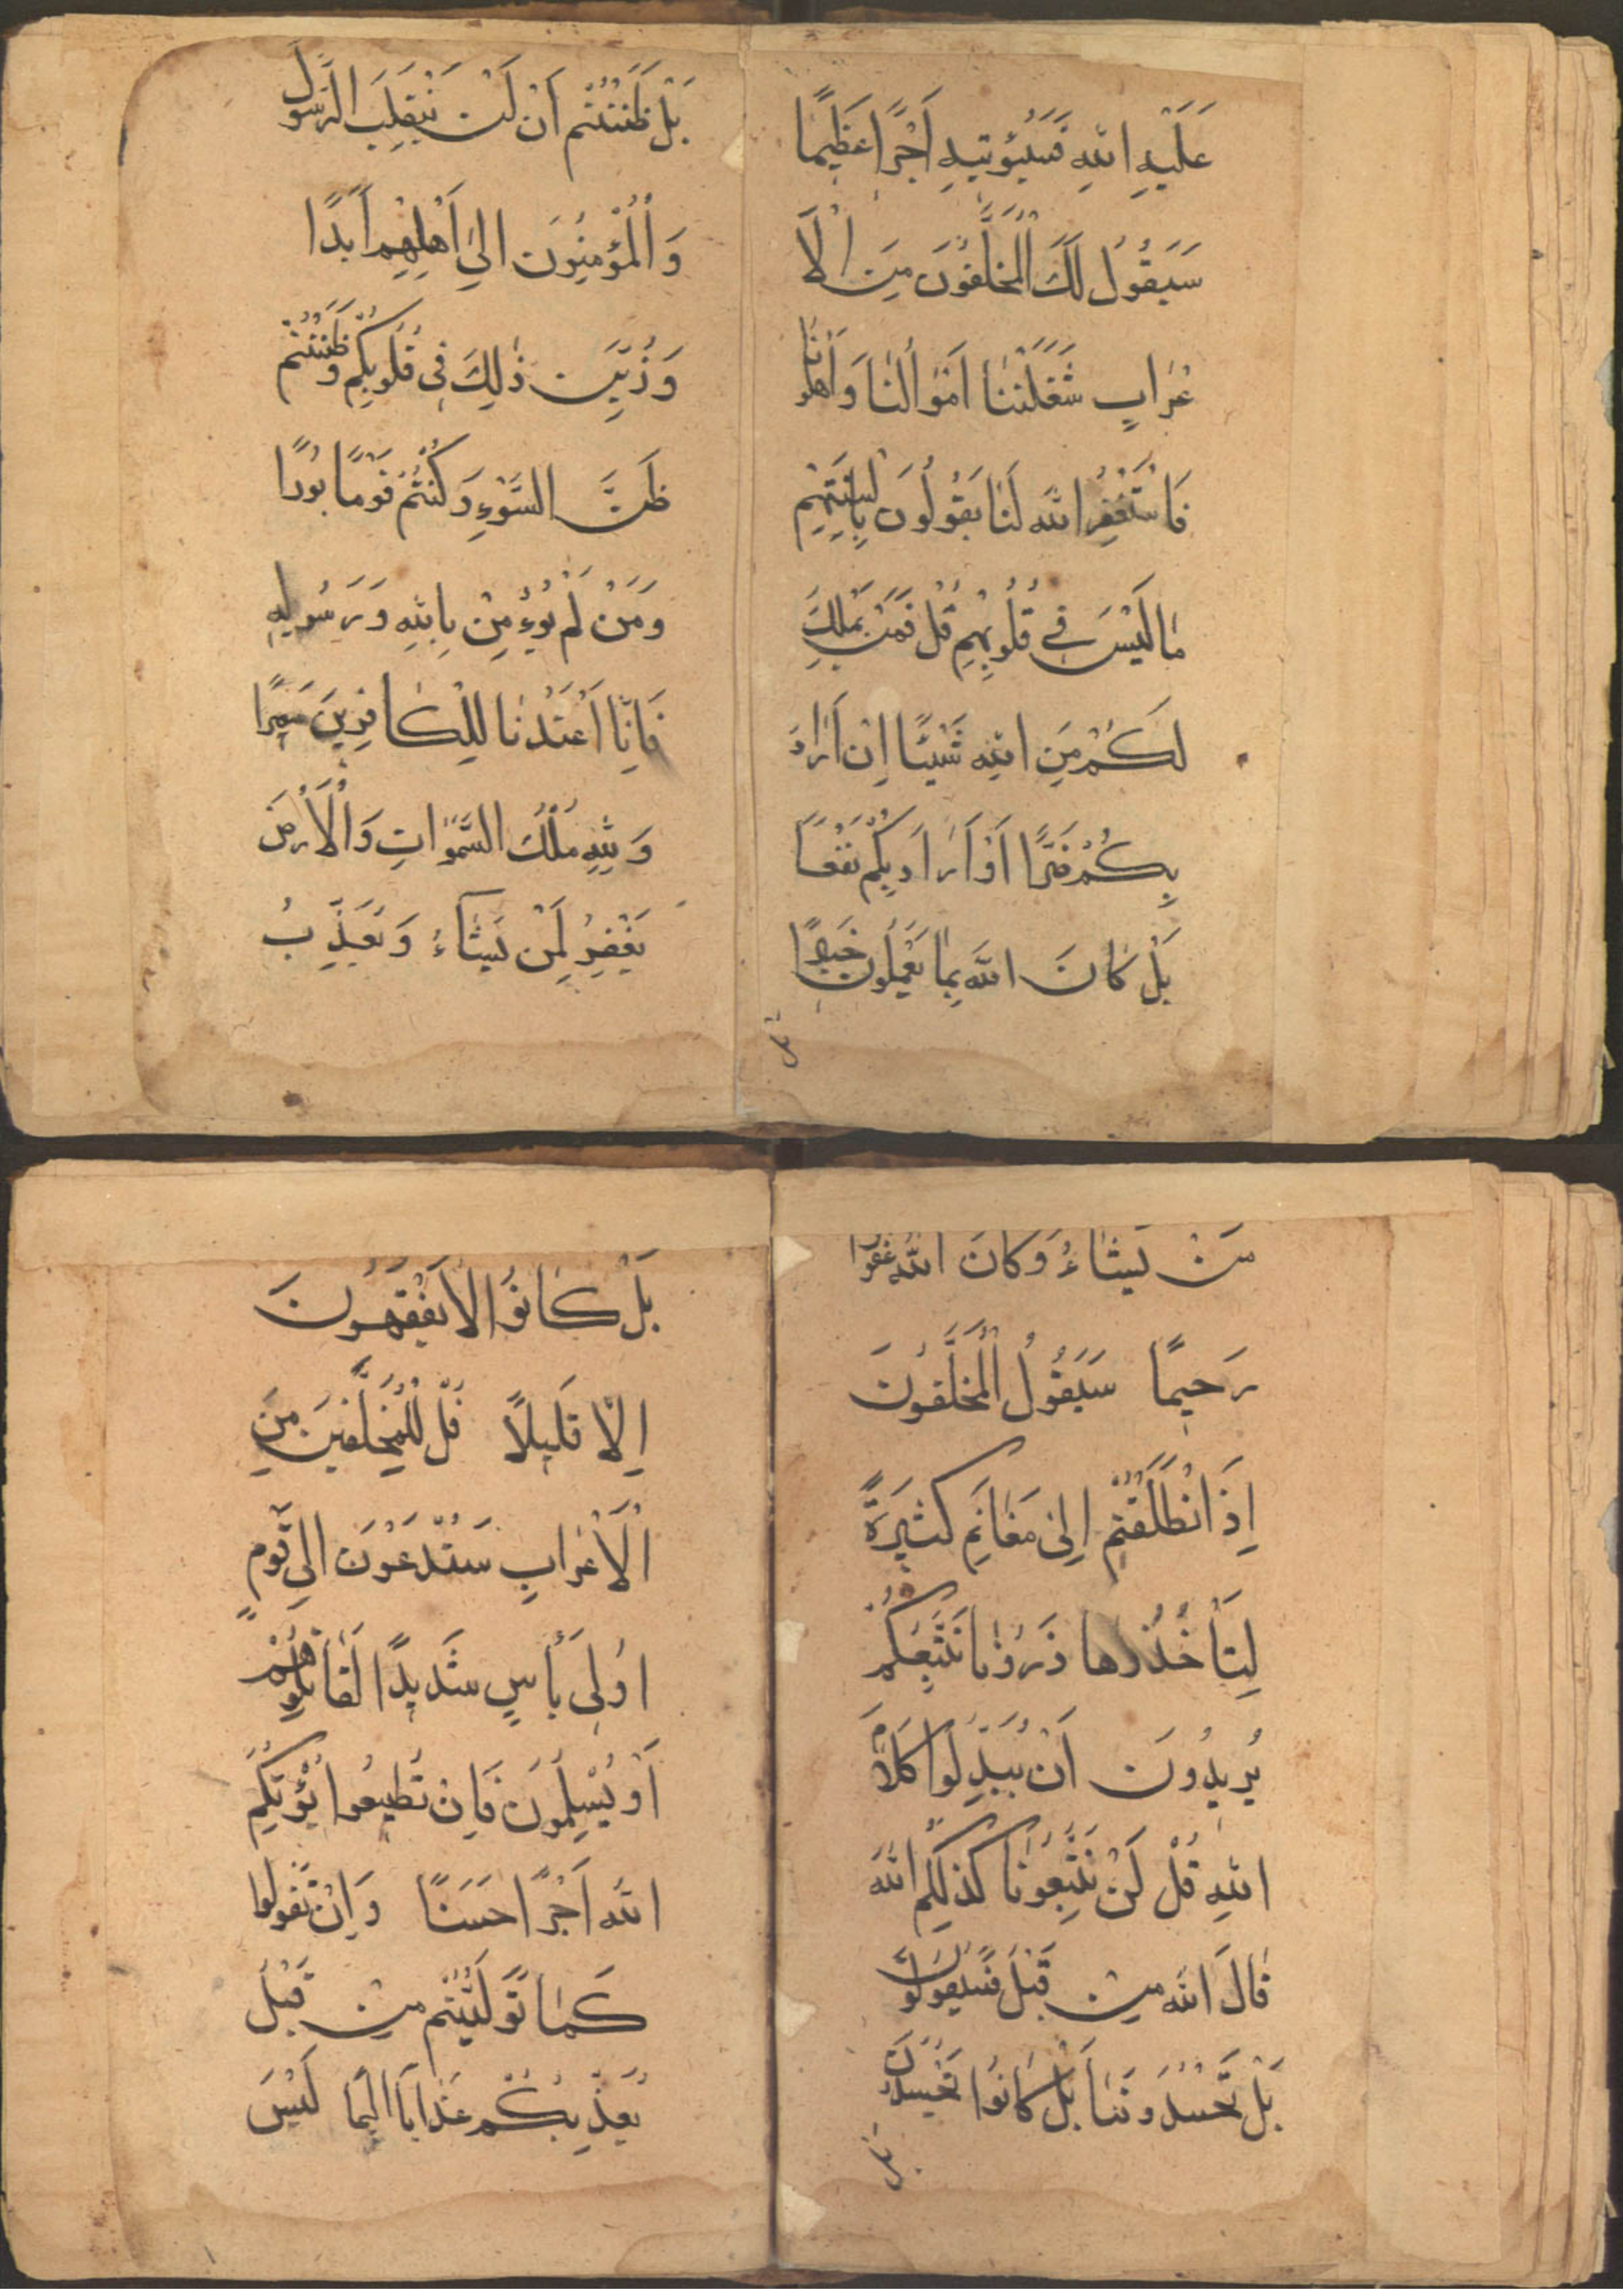 عَلَيْهِ اللّٰهِ فَسَيُؤتيهِ اَجْرًا عَظيمًا
سَيَقُولُ لَكَ الْمُخَلَّفُونَ مِنَ الْاَ
عْرَابِ شَغَلَتْنَا اَمْوَالُنَا وَاَهْلُونَا
فَاسْتَغْفِرْ اللّٰه لَنَا يَقُولُونَ بِاَلْسِنَتِهِمْ
مَا لَيْسَ فِي قُلُوبِهِمْ قُلْ فَمَنْ يَمْلِكُ
لَكُمْ مِنَ اللّٰهِ شَيْئًا اِنْ اَرَادَ
بِكُمْ ضَرًّا اَوْ اَرَادَ بِكُمْ نَفْعًا
بَلْ كَانَ اللّٰهَ بِمَا تَعْمَلُونَ خَبيرًا
بل
بَلْ ظَنَنْتُمْ اَنْ لَنْ يَنْقَلِبَ الرَّسُولُ
وَالْمُؤْمِنُونَ اِلَىٰ اَهْلِيهِمْ اَبَدًا
وَزُيِّنَ ذٰلِكَ فِى قُلُوبِكُمْ وَظَنَنْتُمْ
ظَنَّ السَّوْءِ وَكُنْتُمْ قَوْمًا بُورًا
وَمَنْ لَمْ يُؤْمِنْ بِاللّٰهِ وَرَسُولِهِ
فَاِنَّا اَعْتَدْنَا لِلْكَافِرِينَ سَعِيرًا
وَلِلّٰهِ مُلْكُ السَّمٰوَاتِ وَالْاَرْضِ
يَغْفِرُ لِمَنْ يَشَاءُ وَيُعَذِّبُ
مَنْ يَشَاءُ وَكَانَ اللّٰهُ غَفُورًا
رَحيمًا سَيَقُولُ الْمُخَلَّفُونَ
اِذَا انْطَلَقْتُمْ اِلىٰ مَغَانِمَ كَثيرَةً
لِتَأْخُذُوهَا ذَرُونَا نَتَّبِعْكُمْ
يُرِيدُونَ اَنْ يُبَدِّلُوا كَلَامَ
اللّٰهِ قُلْ لَنْ تَتَّبِعُونَا كَذٰلِكُمْ اللّٰهَ
قَالَ اللّٰهَ مِنْ قَبْلُ فَسَيَقُولُونَ
بَلْ تَحْسُدُونَنَا بَلْ كَانُوا تَحْسُدُونَ
بل
بَلْ كَانُوا لَا يَفْقَهُونَ
اِلَّا قَليلًا قُلْ لِلْمُخَلَّفِينَ مِنَ
الْاَعْرَابِ سَتُدْعَوْنَ اِلَى قَوْمٍ
اُولِى بَأْسٍ شَدِيدًا تُقَاتِلُونَهُمْ
اَوْ يُسْلِمُونَ فَاِنْ تُطِيعُوا يُؤْتِكُمْ
اللّٰهُ اَجْرًا حَسَنًا وَاِنْ تَتَوَلَّوْا
كَمَا تَوَلَّيْتُمْ مِنْ قَبْلُ
يُعَذِّبْكُمْ عَذَابًا اَليمًا لَيْسَ